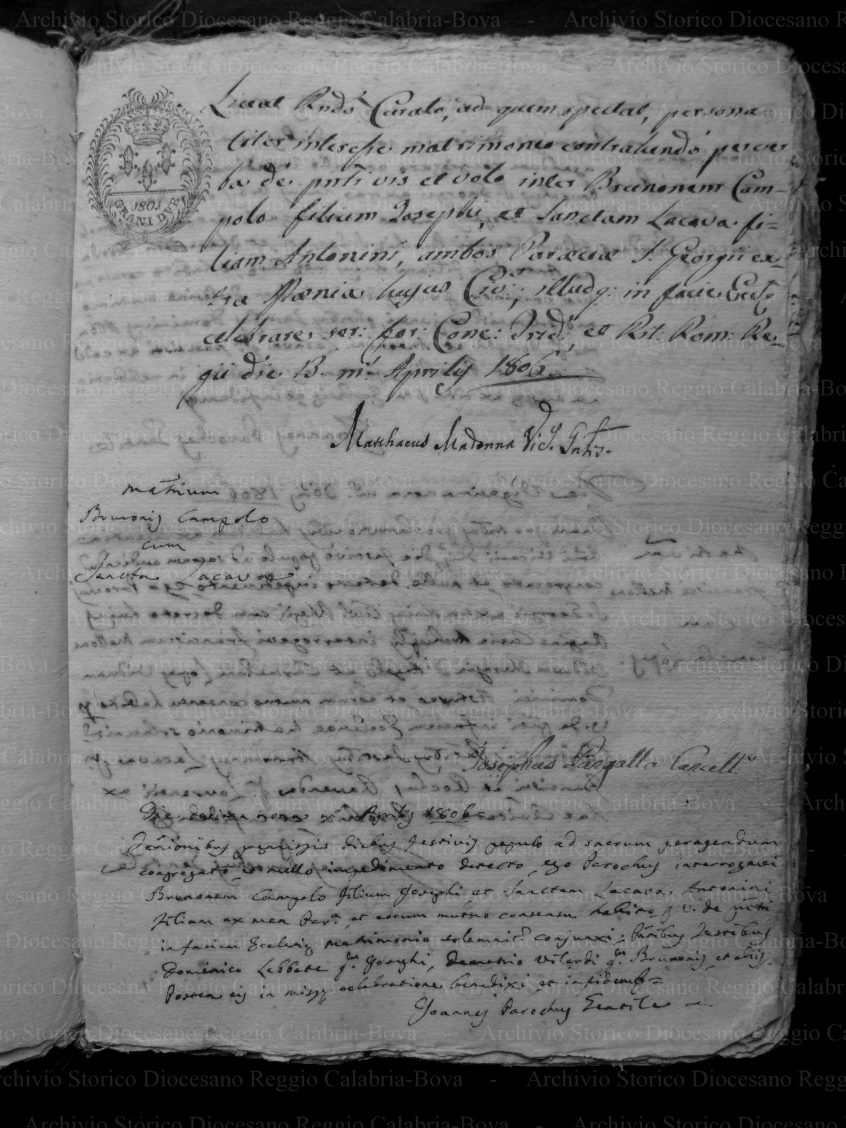 Archivio Storico Diocesano Reggio Calabria-Bova - Archivio Storico Diocesano R
1801
GRANI DUE
Liceat Rndo Curato, ad quem spectat, persona
liter interesse matrimonio contrahendo per ver
ba de pnti vis et volo inter Brunonem Cam-
polo filium Josephi, et Sanctam Lacava fi-
liam Antonini, ambos Paraeciae S. Georgii ex-
tra Maenia hujus Civ:, illudq: in facie Eccl
celebrare ser: for: Conc: Trid:, et Rit. Rom: Re-
gii die 13. m: Aprilis 1806
Matthaeus Madonna Vic. Gnlis.
Matrium
Brunonis Campolo
cum
Sancta Lacava
Josephus Cancell.
Die Aprilis 1806
diebus festivis populo ad sacrum peragendum
congregato, et nullo impedimento detecto, ego Parochus interrogavi
Brunonem Campolo filium Josephi et Sanctam Lacava Antonini
filiam ex mea Par., et eorum mutuo consensu habito p. v. de pnti
in faciem Ecclesiae matrimonio solemnit. conjunxi; pntibus testibus
Domenico Labbate q. Josephi, Demetrio Vilardi q. Brunonis, et aliis.
Postea eis in missae celebratione benedixi et in fidem
Joannes Parochus Gentile